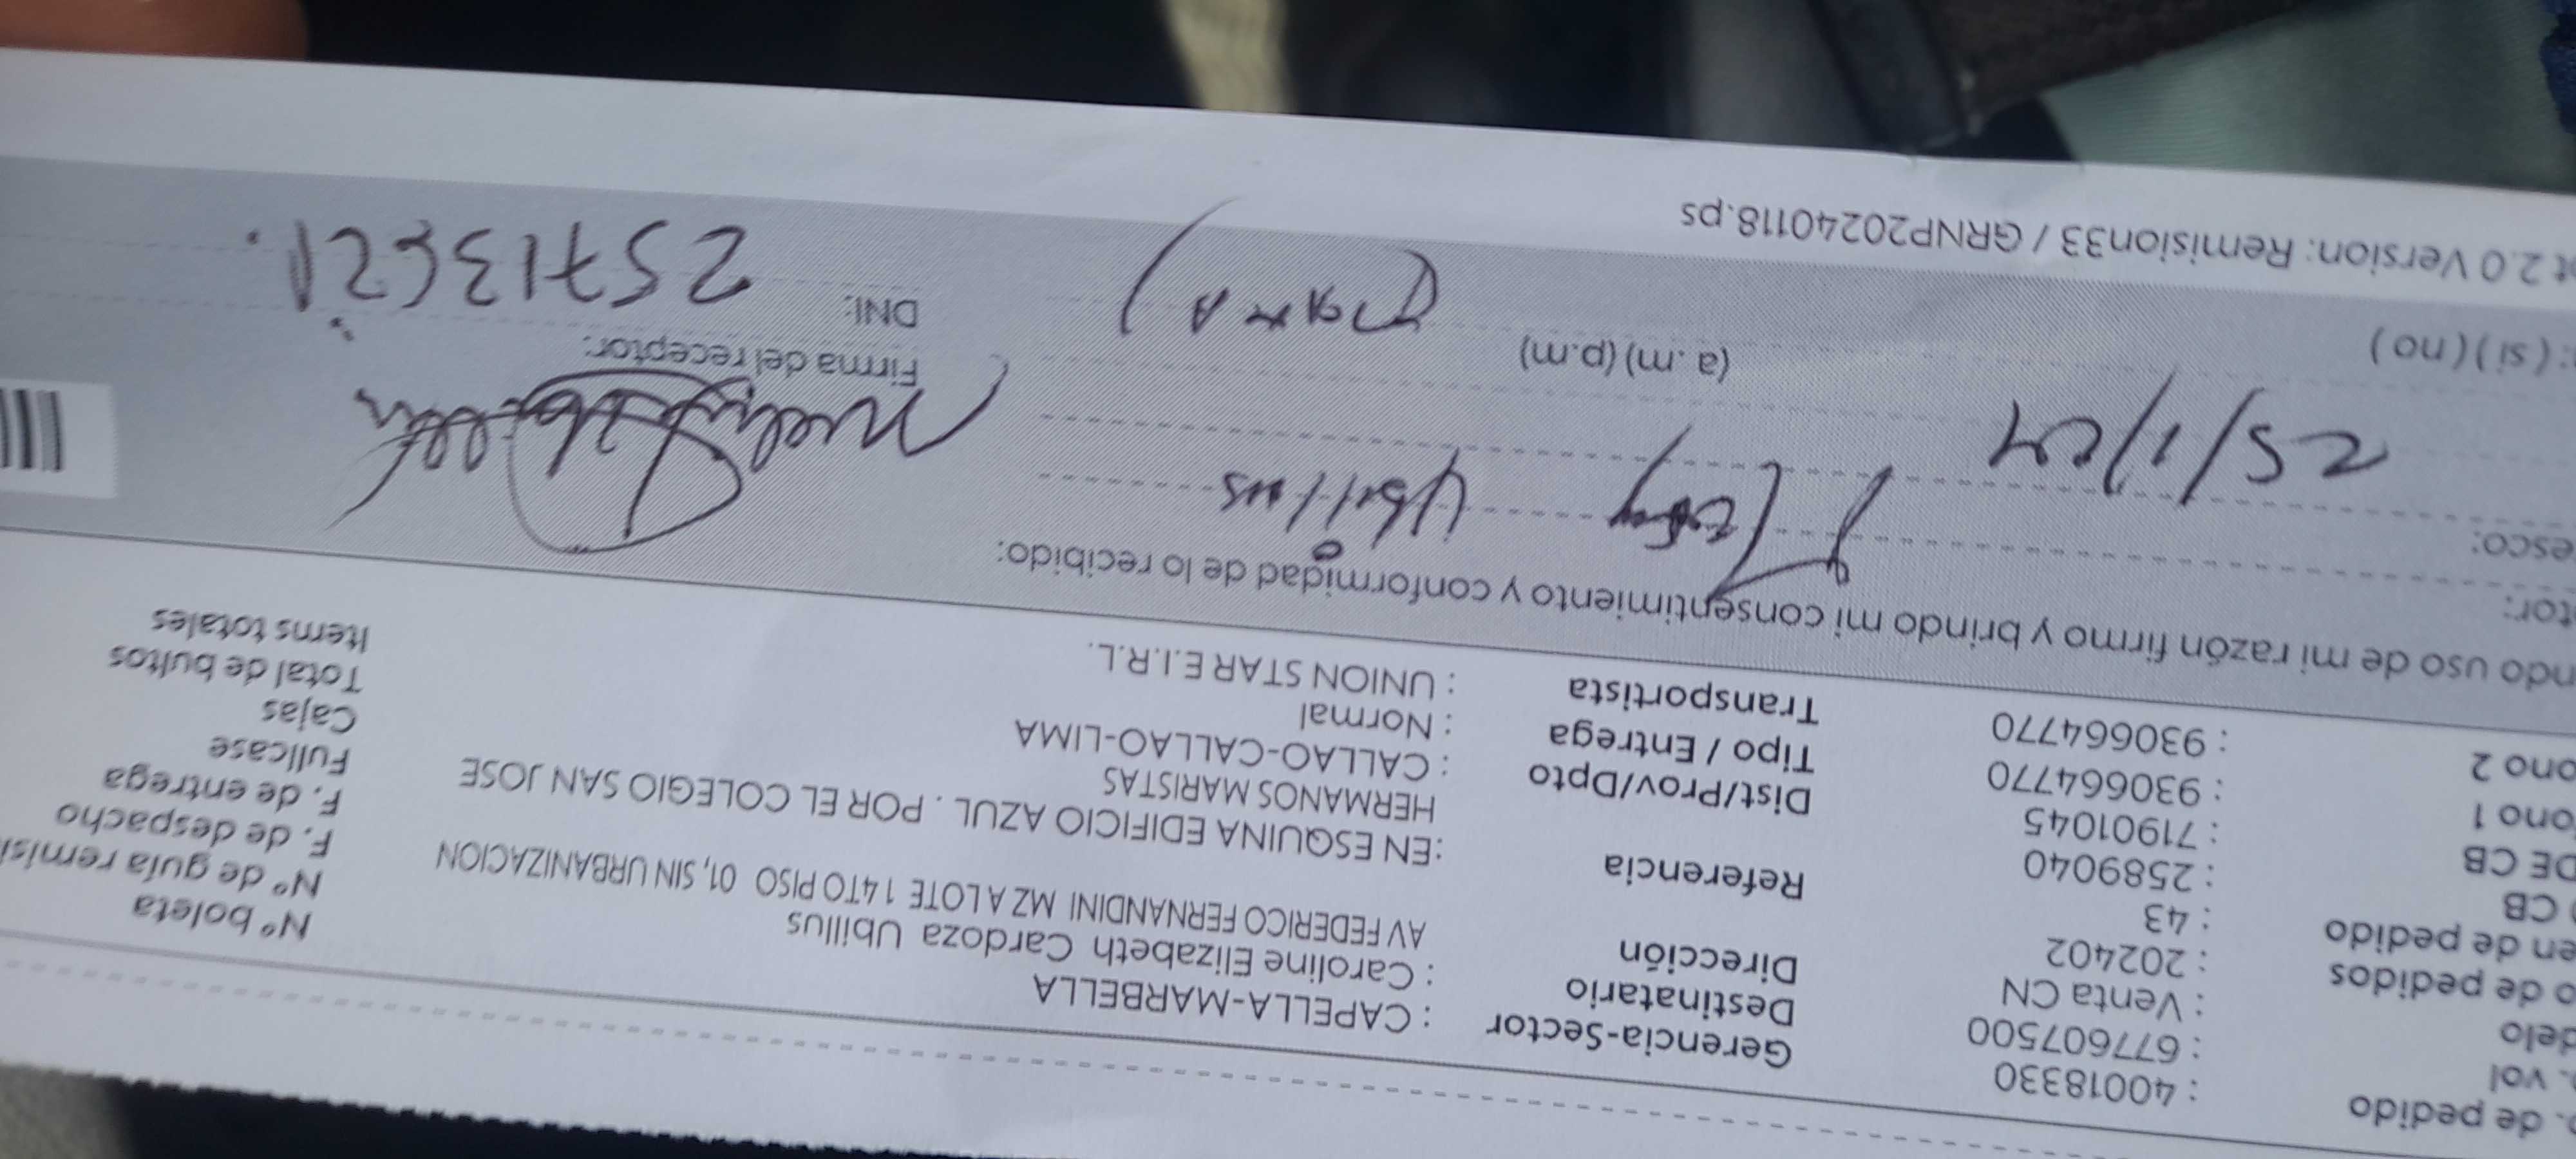 . de pedido : 40018330 Gerencia-Sector : CAPELLA-MARBELLA
. vol : 677607500 Destinatario : Caroline Elizabeth Cardoza Ubillus Nº boleta
delo : Venta CN Dirección AV FEDERICO FERNANDINI MZ A LOTE 14TO PISO 01, SIN URBANIZACION Nº de guía remisi
o de pedidos : 202402 F. de despacho
en de pedido : 43 Referencia :EN ESQUINA EDIFICIO AZUL . POR EL COLEGIO SAN JOSE F. de entrega
CB : 2589040 HERMANOS MARISTAS Fullcase
DE CB : 71901045 Dist/Prov/Dpto : CALLAO-CALLAO-LIMA Cajas
ono 1 : 930664770 Tipo / Entrega : Normal Total de bultos
ono 2 : 930664770 Transportista : UNION STAR E.I.R.L. Items totales
ndo uso de mi razón firmo y brindo mi consentimiento y conformidad de lo recibido:
tor: Ubillus
esco:
25/1/24
: ( si ) ( no ) (a .m) (p.m) Firma del receptor:
DNI:
t 2.0 Version: Remision33 / GRNP20240118.ps